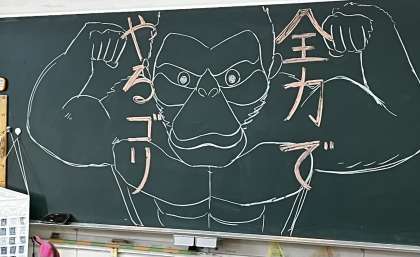 全力で
やるゴリ